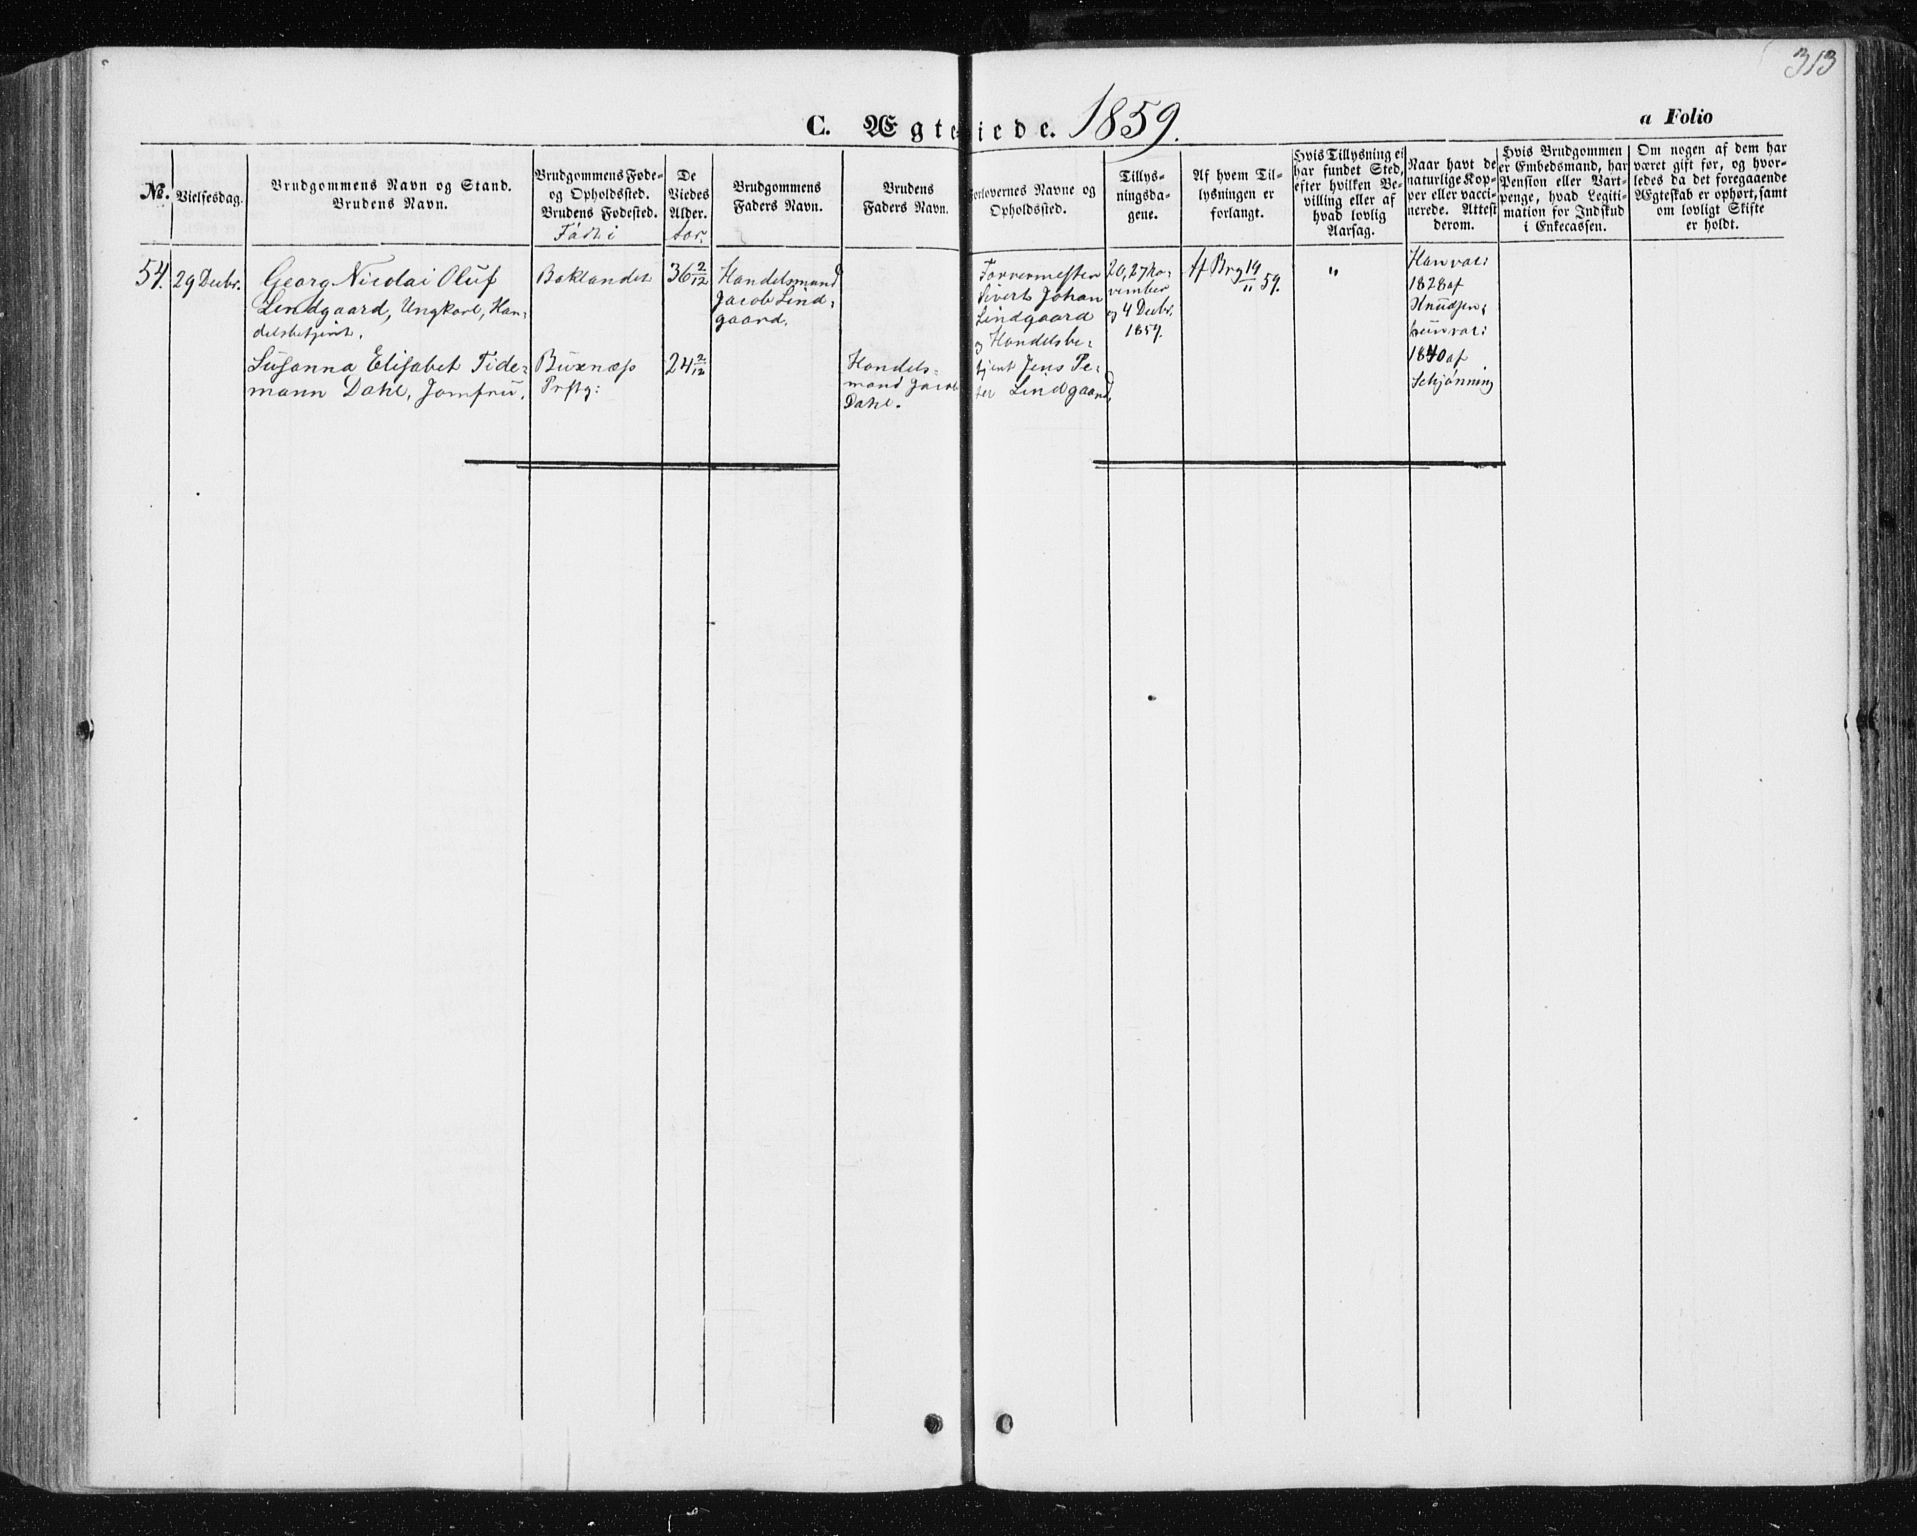 313
C. Ægteviede. 1859.
a Folio
No.
Vielsesdag.
Brudgommens Navn og Stand.
Brudens Navn.
Brudgommens Føde-
og Opholdssted.
Brudens Fødested.
Født i
De
Viedes
Alder.
Brudgommens
Faders Navn.
Brudens
Faders Navn.
Forlovernes Navne og
Opholdssted.
Tillys-
ningsda-
gene.
Af hvem Til-
lysningen er
forlangt.
Hvis Tillysning ei
har fundet Sted,
efter hvilken Be-
villing eller af
hvad lovlig
Aarsag.
Naar havt de
naturlige Kop-
per eller vacci-
nerede. Attest
derom.
Hvis Brudgommen
er Embedsmand, har
Pension eller Vart-
penge, hvad Legiti-
mation for Indskud
i Enkecassen.
Om nogen af dem har
været gift før, og hvor-
ledes da det foregaaende
Ægteskab er ophørt, samt
om lovligt Skifte
er holdt.
54.
29 Decbr.
Georg Nicolai Oluf
Lindgaard, Ungkarl, Han-
delsbetjent.
Baklandet
36 2/12
Handelsmand
Jacob Lind-
gaard.
Farvermester
Sivert Johan
Lindgaard
og Handelsbe-
tjent Jens Pe-
ter Lindgaard.
20, 27 No-
vember
og 4 Decbr.
1859.
Af Brg 19/11 59.
"
Han vac:
1828 af
Knudsen,
hun vac:
1840 af
Schjønning
Susanna Elisabet Tide-
mann Dahl, Jomfru.
Buxnæs
Prstg:
24 2/12
Handels-
mand Jacob
Dahl.